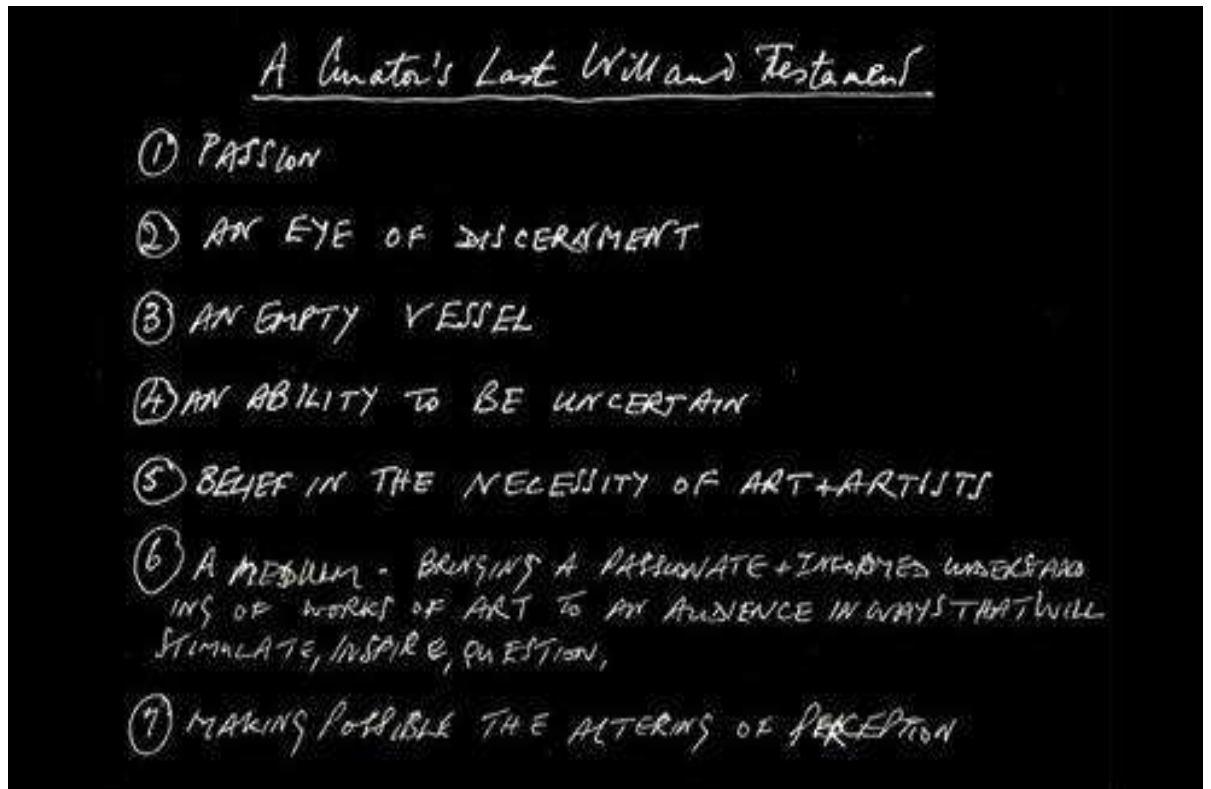 A Curator's Last Will and Testament
① PASSION
② AN EYE OF DISCERNMENT
③ AN EMPTY VESSEL
④ AN ABILITY TO BE UNCERTAIN
⑤ BELIEF IN THE NECESSITY OF ART + ARTISTS
⑥ A MEDIUM - BRINGING A PASSIONATE + INFORMED UNDERSTAND
ING OF WORKS OF ART TO AN AUDIENCE IN WAYS THAT WILL
STIMULATE, INSPIRE, QUESTION,
⑦ MAKING POSSIBLE THE ALTERING OF PERCEPTION